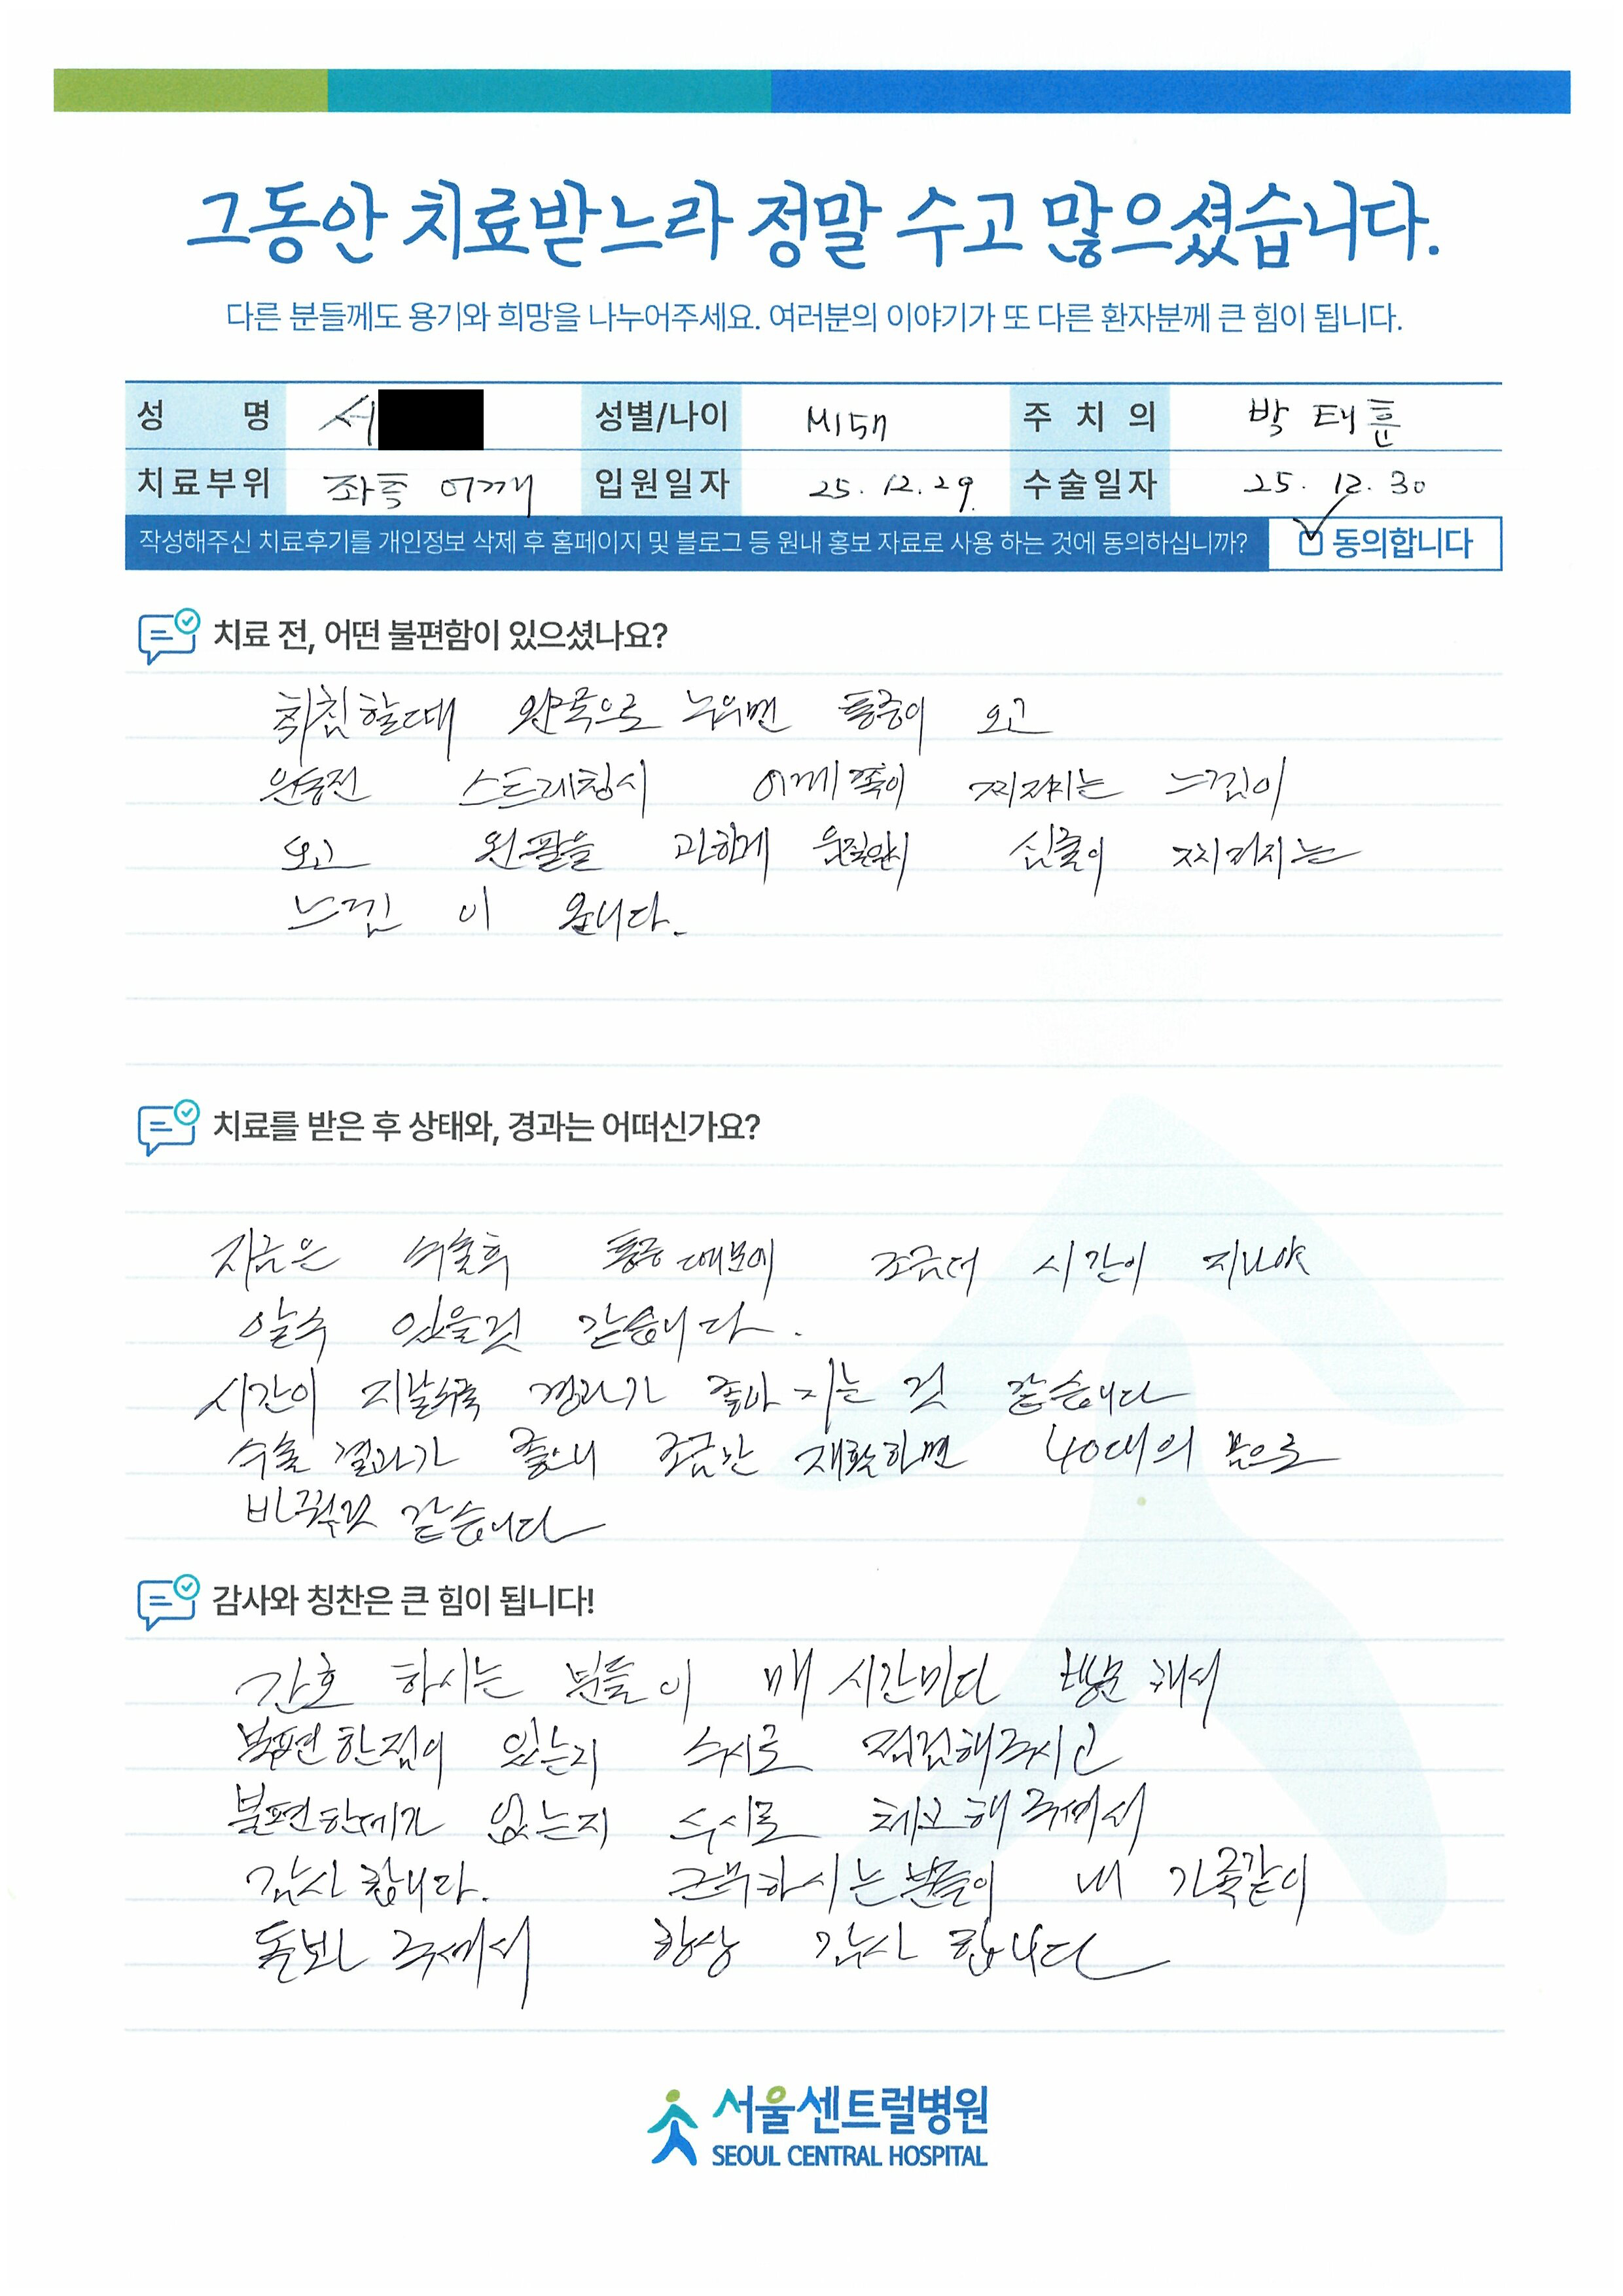 그동안 치료받느라 정말 수고 많으셨습니다.
다른 분들께도 용기와 희망을 나누어주세요. 여러분의 이야기가 또 다른 환자분께 큰 힘이 됩니다.
성 명 서 성별/나이 M/57 주 치 의 박태훈
치료부위 좌측 어깨 입원일자 25. 12. 29. 수술일자 25. 12. 30
작성해주신 치료후기를 개인정보 삭제 후 홈페이지 및 블로그 등 원내 홍보 자료로 사용 하는 것에 동의하십니까? 동의합니다
치료 전, 어떤 불편함이 있으셨나요?
취침할때 왼쪽으로 누우면 통증이 오고
운동전 스트레칭시 어께쪽이 찌져지는 느낌이
오고 왼팔을 과하게 심줄이 찌져지는
느낌 이 옵니다.
치료를 받은 후 상태와, 경과는 어떠신가요?
지금은 수술후 통증 때문에 조금더 시간이 지나야
알수 있을것 같습니다.
시간이 지날수록 경과가 좋아 지는 것 같습니다
수술 결과가 좋으니 조금만 재활하면 40대의 몸으로
바뀔것 같습니다
감사와 칭찬은 큰 힘이 됩니다!
간호 하시는 분들이 매 시간마다 방문 해서
불편한점이 있는지 수시로 점검해주시고
불편한데가 없는지 수시로 체크해 주셔서
감사 합니다. 근무하시는 분들이 내 가족같이
돌봐 주셔서 항상 감사 합니다
서울센트럴병원
SEOUL CENTRAL HOSPITAL